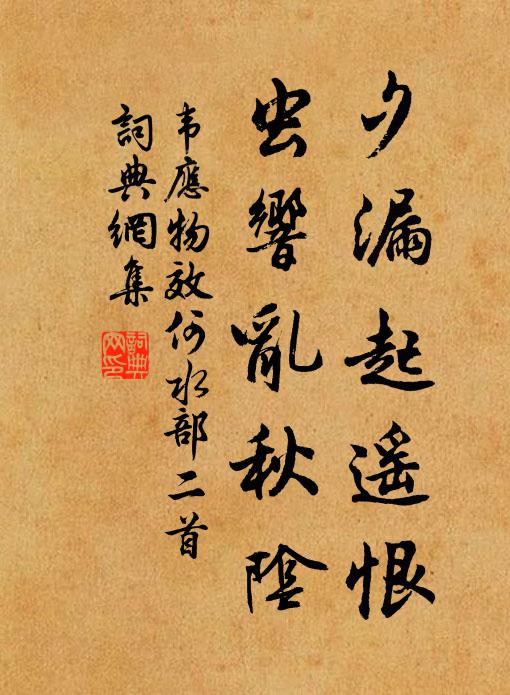 夕漏起遥恨
虫響亂秋陰
韦應物效何水部二首
詞典網集
詞典网印